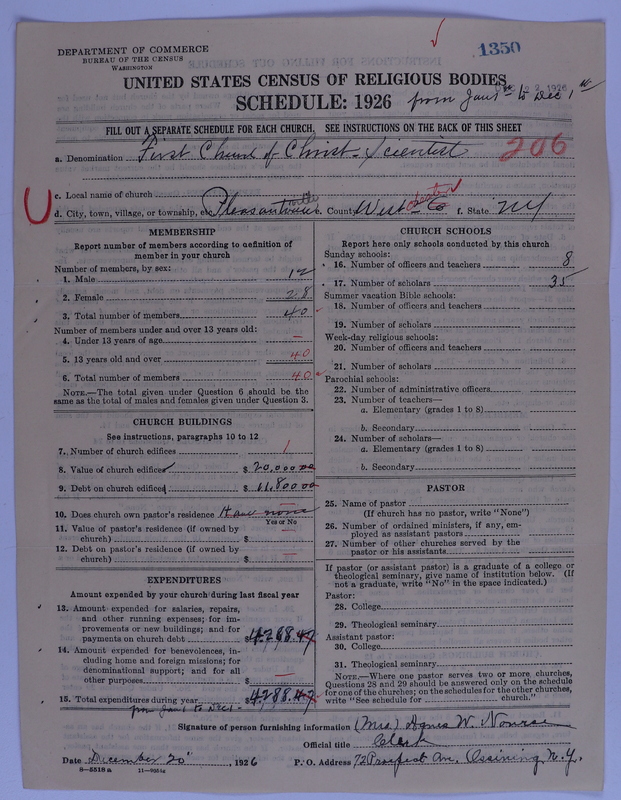 DEPARTMENT OF COMMERCE
BUREAU OF THE CENSUS
WASHINGTON
1350
UNITED STATES CENSUS OF RELIGIOUS BODIES
SCHEDULE: 1926 from Jan 1st to Dec 1st
FILL OUT A SEPARATE SCHEDULE FOR EACH CHURCH. SEE INSTRUCTIONS ON THE BACK OF THIS SHEET
a. Denomination First Church of Christ-Scientist 206
c. Local name of church
d. City, town, village, or township, etc. Pleasantville e. County West- Co f. State NY
MEMBERSHIP
Report number of members according to definition of member in your church
Number of members, by sex:
1. Male 12
2. Female 28
3. Total number of members 40
Number of members under and over 13 years old:
4. Under 13 years of age —
5. 13 years old and over 40
6. Total number of members 40
NOTE.—The total given under Question 6 should be the same as the total of males and females given under Question 3.
CHURCH BUILDINGS
See instructions, paragraphs 10 to 12
7. Number of church edifices 1
8. Value of church edifices $ 20,000.00
9. Debt on church edifices $ 11,800.00
10. Does church own pastor's residence Have none
Yes or No
11. Value of pastor's residence (if owned by church) $ —
12. Debt on pastor's residence (if owned by church) $ —
EXPENDITURES
Amount expended by your church during last fiscal year
13. Amount expended for salaries, repairs, and other running expenses; for improvements or new buildings; and for payments on church debt $ 4,788.47
14. Amount expended for benevolences, including home and foreign missions; for denominational support; and for all other purposes $ —
15. Total expenditures during year $ 4,788.47
from Jan 1 to Dec 1-
CHURCH SCHOOLS
Report here only schools conducted by this church
Sunday schools:
16. Number of officers and teachers 8
17. Number of scholars 35
Summer vacation Bible schools:
18. Number of officers and teachers
19. Number of scholars
Week-day religious schools:
20. Number of officers and teachers
21. Number of scholars
Parochial schools:
22. Number of administrative officers
23. Number of teachers—
a. Elementary (grades 1 to 8)
b. Secondary
24. Number of scholars—
a. Elementary (grades 1 to 8)
b. Secondary
PASTOR
25. Name of pastor
(If church has no pastor, write "None")
26. Number of ordained ministers, if any, employed as assistant pastors
27. Number of other churches served by the pastor or his assistants
If pastor (or assistant pastor) is a graduate of a college or theological seminary, give name of institution below. (If not a graduate, write "No" in the space indicated.)
Pastor:
28. College
29. Theological seminary
Assistant pastor:
30. College
31. Theological seminary
NOTE.—Where one pastor serves two or more churches, Questions 28 and 29 should be answered only on the schedule for one of the churches; on the schedules for the other churches, write "See schedule for church."
Signature of person furnishing information (Mrs) Agnes W.
Official title Clerk
Date December 20, 1926 P. O. Address 72 Prospect Ave, Ossining, N.Y.
8—5518 a 11—9051c